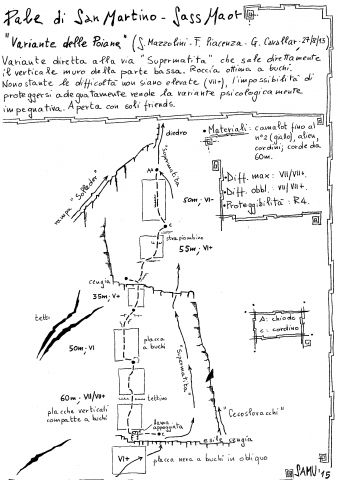 Pale di San Martino - Sass Maor
"Variante delle Poiane" (S. Mazzolini - F. Piacenza - G. Cavallar - 27/8/15)
Variante diretta alla via "Supermatita" che sale direttamente
il verticale muro della parte bassa. Roccia ottima a buchi.
Nonostante le difficoltà non siano elevate (VII+), l'impossibilità di
proteggersi adeguatamente rende la variante psicologicamente
impegnativa. Aperta con soli friends.
diedro
• Materiali: camalot fino al
n°2 (giallo), alien,
cordini; corde da
60m.
• Diff. max: VII/VII+.
• Diff. obbl.: VII/VII+.
• Proteggibilità: R4.
rampa "Solleder"
"Supermatita"
50m, VI-
c
strapiombino
55m, VI+
cengia
35m, V+
tetti
50m, VI
placca
a buchi
"Supermatita"
A: chiodo
c: cordino
60m, VII/VII+
placche verticali
compatte a buchi
tettino
lama
appoggiata
"Cecoslovacchi"
esile cengia
VI+
placca nera a buchi in obliquo
SAMU '15